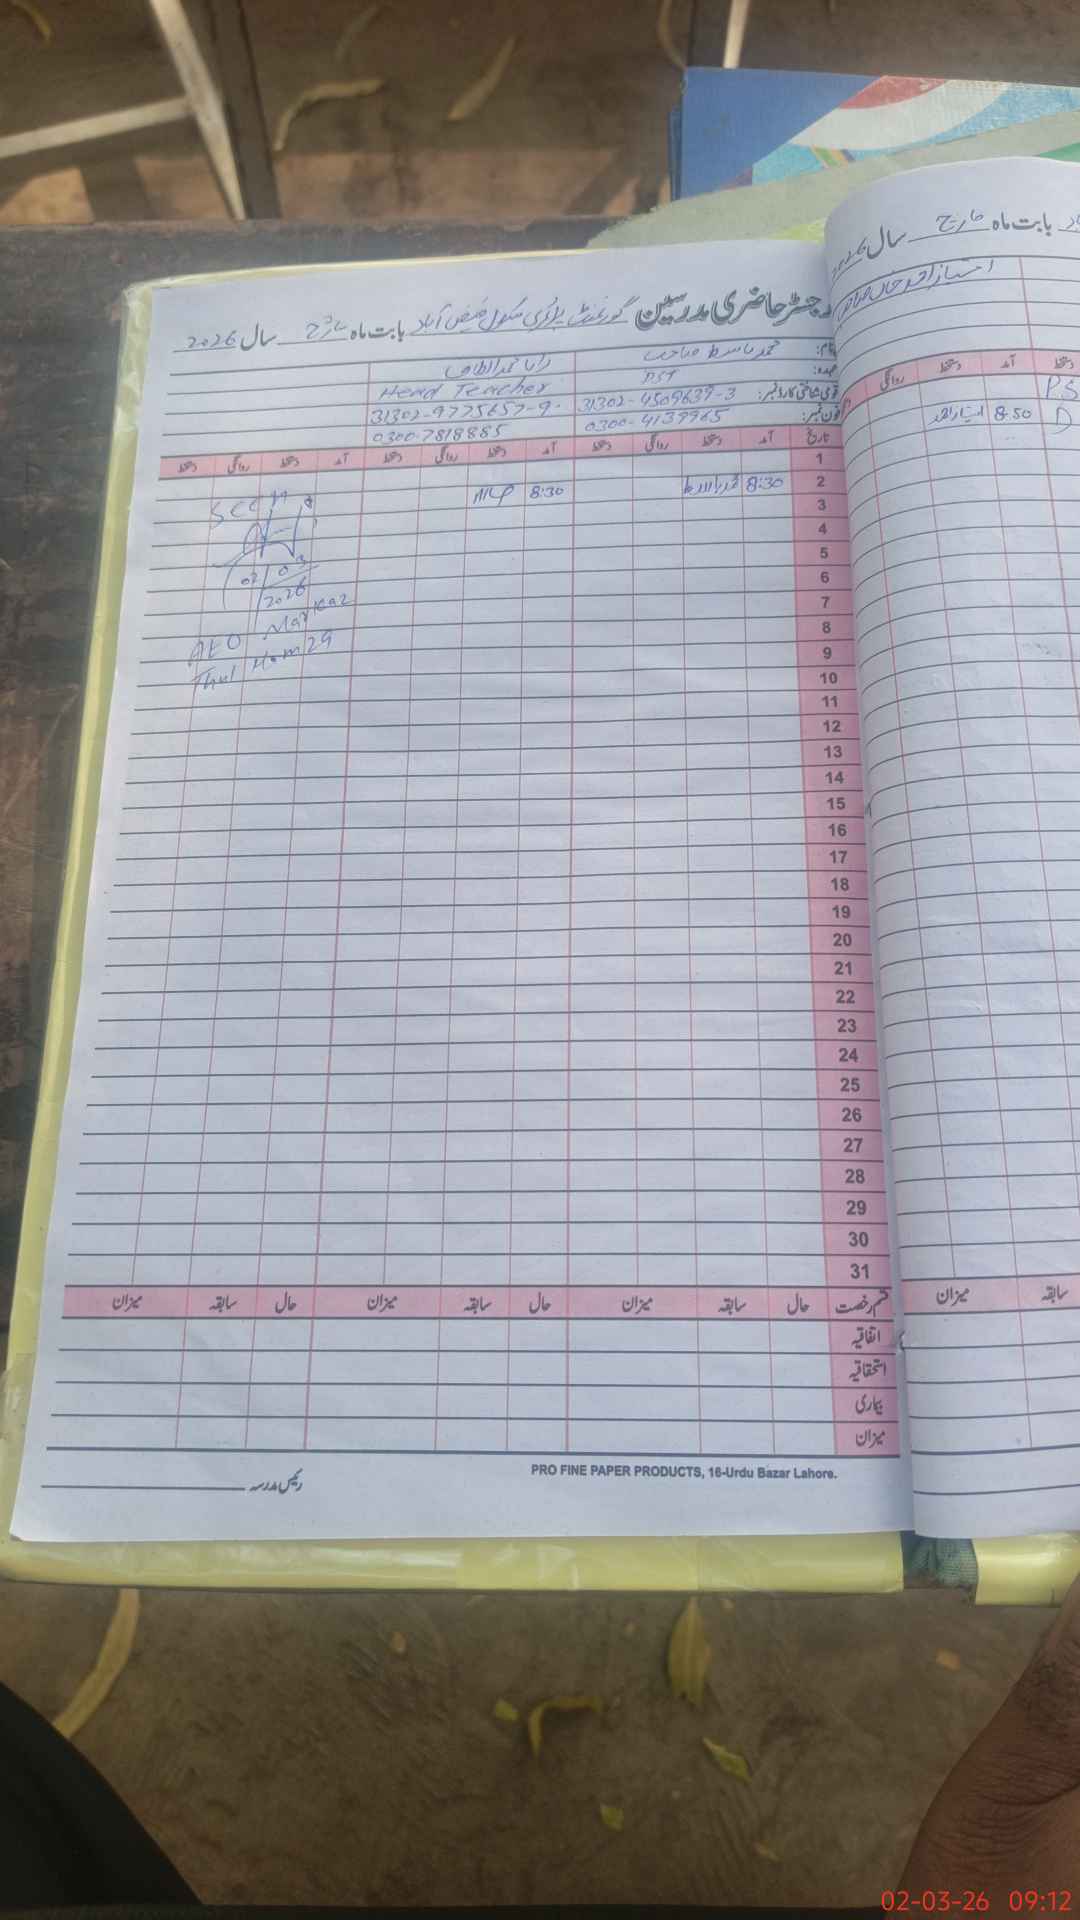 رجسٹر حاضری مدرسین گورنمنٹ پرائمری سکول فیض آباد بابت ماہ مارچ سال 2026
نام: محمد باسط صاحب رانا محمد الطاف
عہدہ: PST Head Teacher
قومی شناختی کارڈ نمبر: 31302-4509639-3 31302-9775657-9
فون نمبر: 0300-4139965 0300-7818885
تاریخ آمد دستخط روانگی دستخط آمد دستخط روانگی دستخط آمد دستخط روانگی دستخط
1
2 8:30 8:30
3
4
5
6
7
8
9
10
11
12
13
14
15
16
17
18
19
20
21
22
23
24
25
26
27
28
29
30
31
Seen
02/03
2026
AEO Markaz
Thul Hamza
قسم رخصت حال سابقہ میزان حال سابقہ میزان حال سابقہ میزان
اتفاقیہ
استحقاقیہ
بیماری
میزان
PRO FINE PAPER PRODUCTS, 16-Urdu Bazar Lahore.
رئیس مدرسہ
بابت ماہ مارچ سال 2026
امتیاز احمد خان
PS
دستخط آمد دستخط روانگی
8:50 امتیاز احمد
سابقہ میزان
02-03-26 09:12